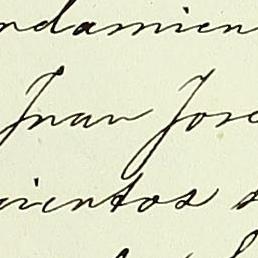 ndamien
Juan Jose
mientos s